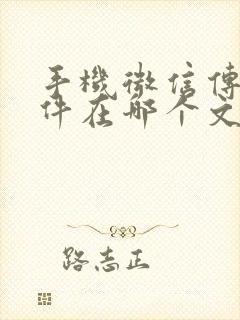 手機微信傳
件在哪个文
路志正